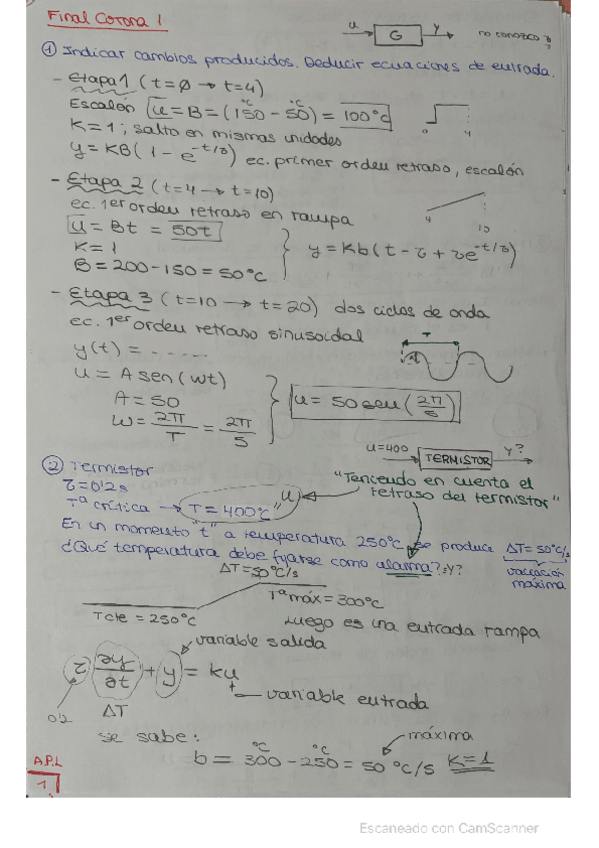 Final Corona 1
u G y no conozco
① Indicar cambios producidos. Deducir ecuaciones de entrada.
- Etapa 1 (t=0 → t=4)
Escalón u = B = (150 - 50) = 100°C
°C °C
0 4
K=1; salto en mismas unidades
y = KB(1 - e^-t/τ) ec. primer orden retraso, escalón
- Etapa 2 (t=4 → t=10)
ec. 1er orden retraso en rampa
4 10
u = Bt = 50t
K=1
y = Kb(t - τ + τe^-t/τ)
B = 200 - 150 = 50°C
- Etapa 3 (t=10 → t=20) dos ciclos de onda
ec. 1er orden retraso sinusoidal
T
y(t) = ......
A
u = A sen(wt)
A = 50
u = 50 sen(2π/5)
W = 2π/T = 2π/5
u=400 TERMISTOR y?
② Termistor
"Teniendo en cuenta el
retraso del termistor"
τ = 0'2 s
Tª crítica → T = 400°C u
En un momento "t" a temperatura 250°C se produce ΔT = 50°C/s
variación
máxima
¿Qué temperatura debe fijarse como alarma? ¿y?
ΔT = 50°C/s
Tª máx = 300°C
T cte = 250°C
Luego es una entrada rampa
variable salida
τ ∂y/∂t + y = ku
variable entrada
0'2 ΔT
se sabe:
máxima
b = 300 - 250 = 50 °C/s K=1
°C °C
A.P.L
1
Escaneado con CamScanner